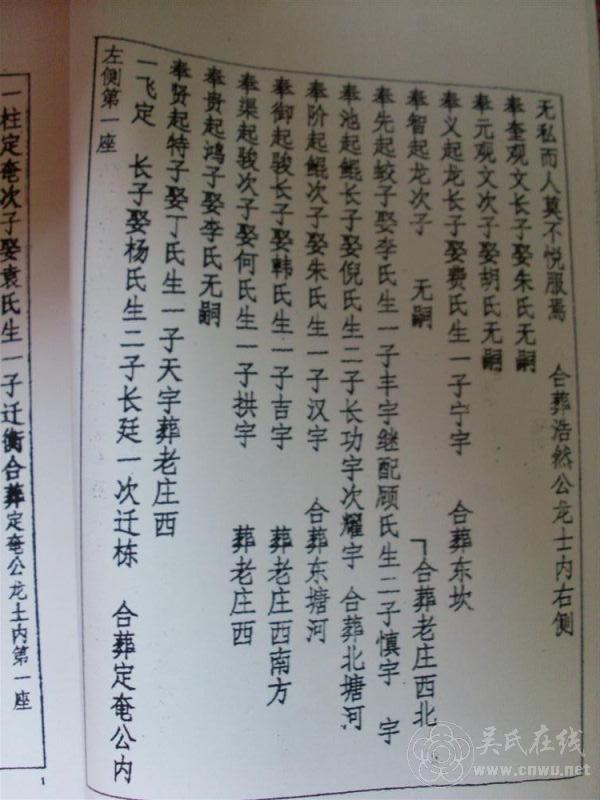 无私而人莫不悦服焉 合葬浩然公龙士内右侧
奉奎观文长子娶朱氏无嗣
奉元观文次子娶胡氏无嗣
奉义起龙长子娶费氏生一子宁宇 合葬东坎
奉智起龙次子 无嗣 合葬老庄西北
奉先起蛟子娶李氏生一子丰宇继配顾氏生二子慎宇 宇
奉池起鲲长子娶倪氏生二子长功宇次耀宇 合葬北塘河
奉阶起鲲次子娶朱氏生一子汉宇 合葬东塘河
奉御起骏长子娶韩氏生一子吉宇 葬老庄西南方
奉渠起骏次子娶何氏生一子拱宇 葬老庄西
奉贵起鸿子娶李氏无嗣
奉贤起特子娶丁氏生一子天宇葬老庄西
一飞定 长子娶杨氏生二子长廷一次迁栋 合葬定奄公内
左侧第一座
一柱定奄次子娶袁氏生一子迁衡合葬定奄公龙士内第一座
1
吴氏在线
www.cnwu.net